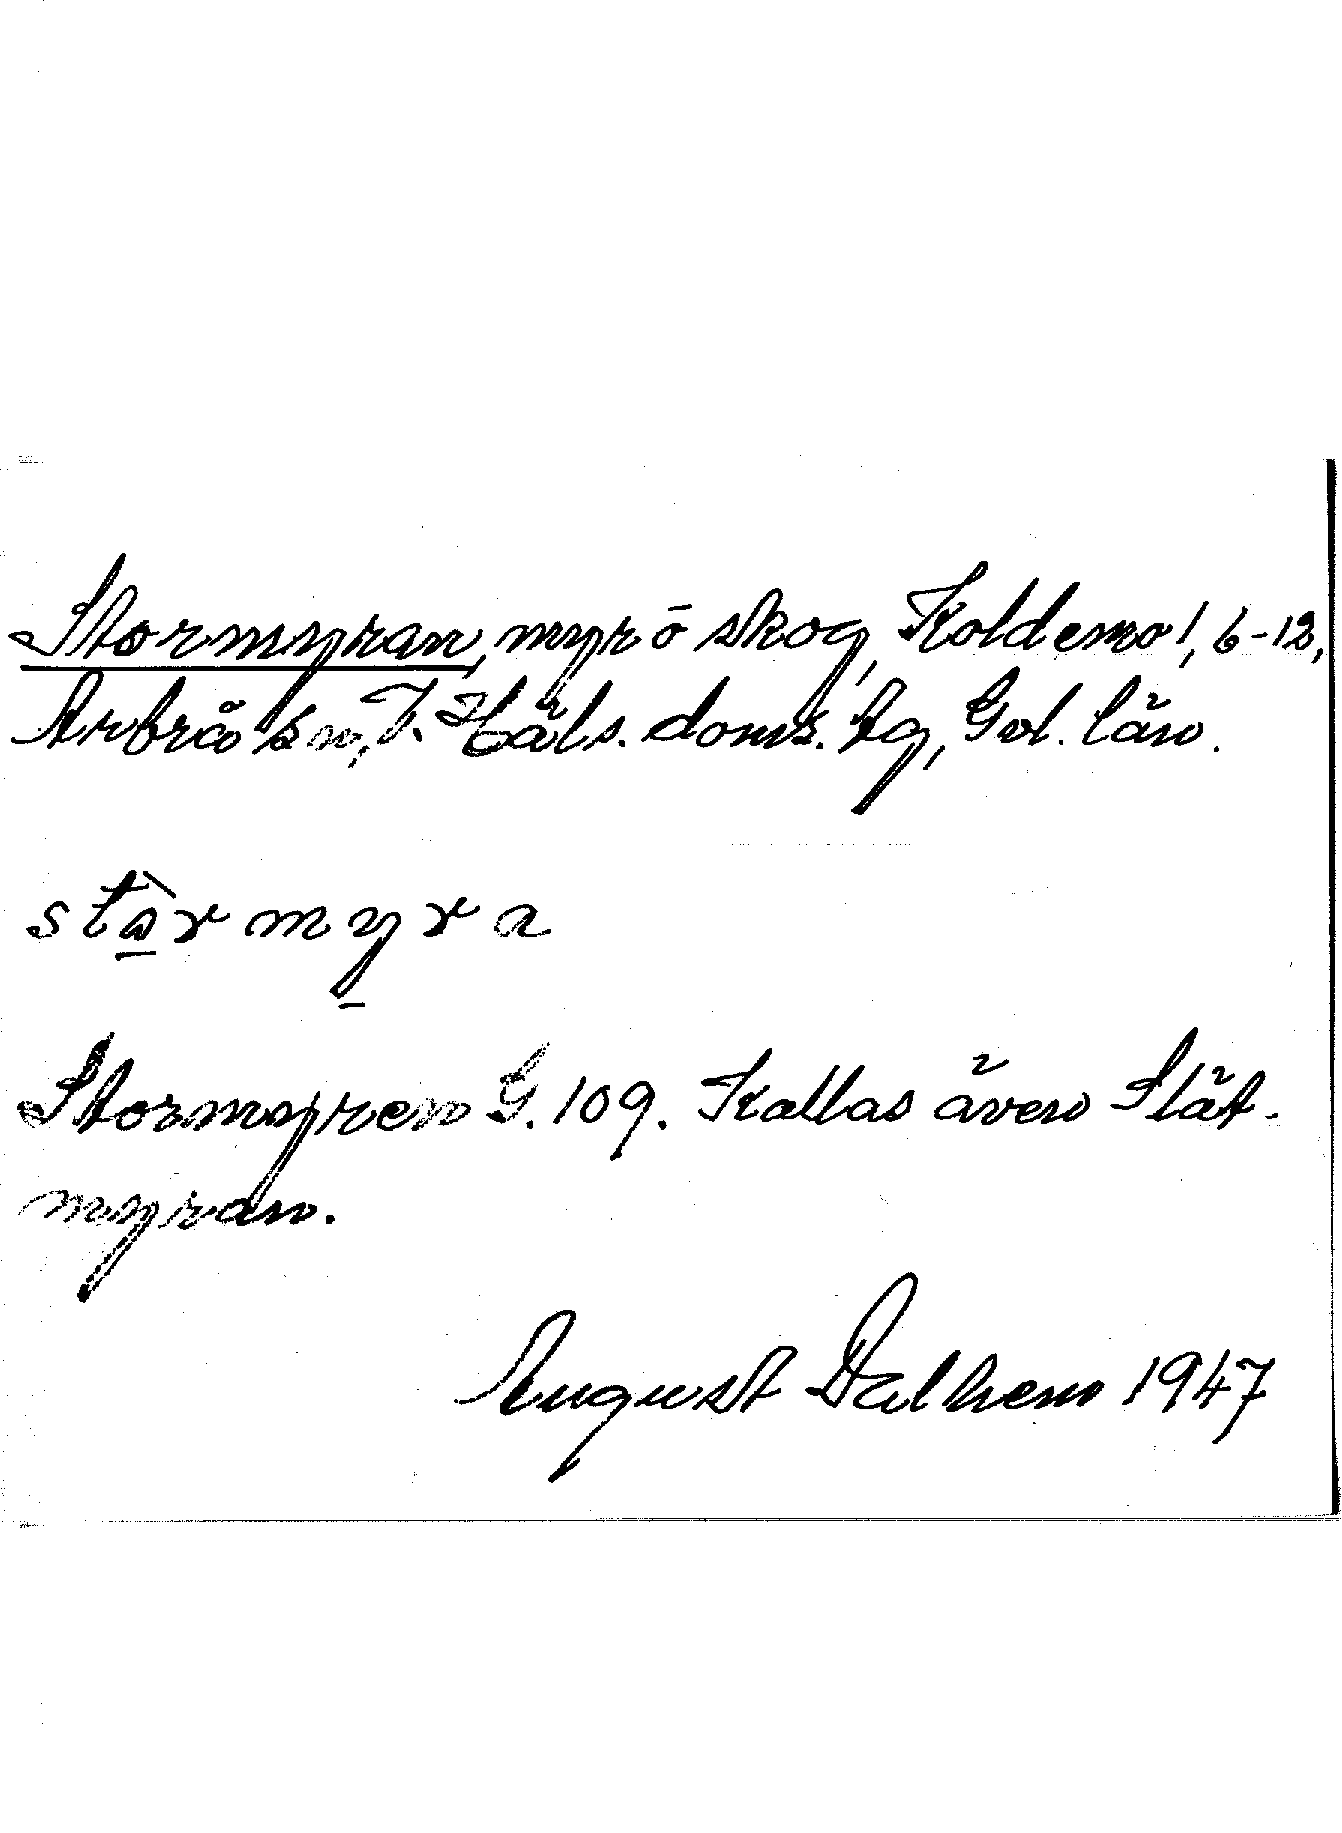 Stormyran, myr o skog, Koldemo!, 6-12,
Arbrå sn, V. Häls. doms. tg, Gvl. län.
stårmyra
Stormyren G. 109. Kallas även Slät-
myran.
August Dalhem 1947